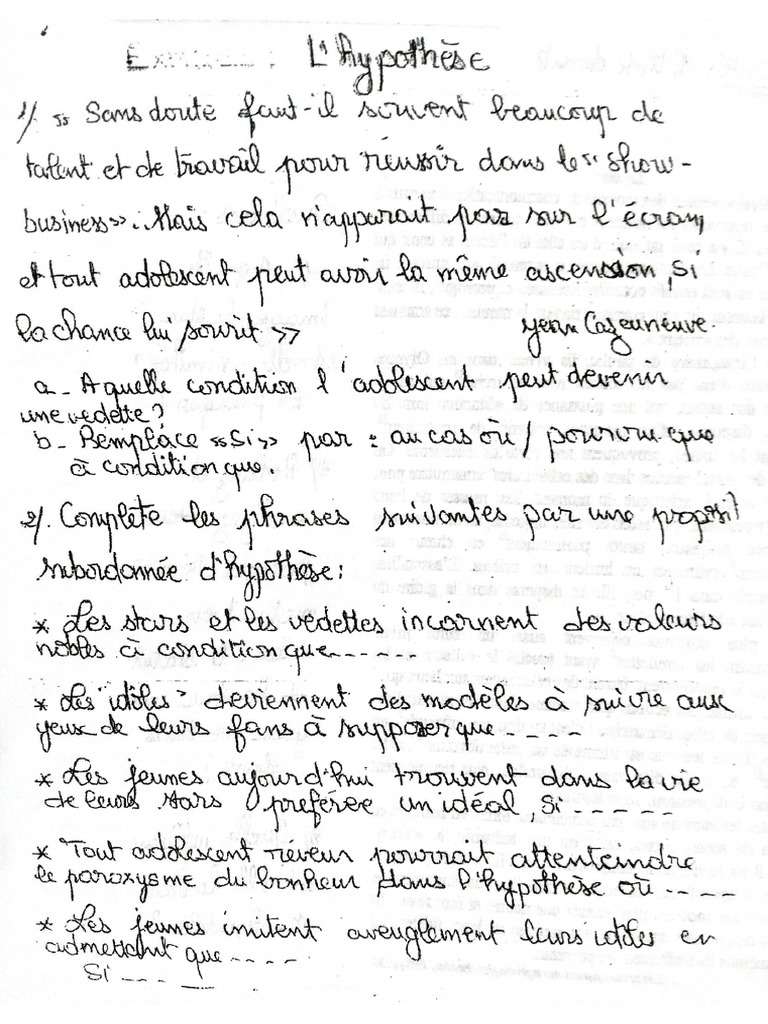 Exercice : L'hypothèse
1/ « Sans doute faut-il souvent beaucoup de
talent et de travail pour réussir dans le « show-
business ». Mais cela n'apparait pas sur l'écran,
et tout adolescent peut avoir la même ascension, si
la chance lui sourit » Jean Cazeuneuve.
a - A quelle condition l'adolescent peut devenir
une vedette ?
b - Remplace « Si » par : au cas où / pourvu que
à condition que.
2/. Complète les phrases suivantes par une proposit
subordonnée d'hypothèse :
* Les stars et les vedettes incarnent des valeurs
nobles à condition que - - - - - -
* Les "idoles" deviennent des modèles à suivre aux
yeux de leurs fans à supposer que - - - -
* Les jeunes aujourd'hui trouvent dans la vie
de leurs stars préférée un idéal si - - - - -
* Tout adolescent rêveur pourrait attenteindre
le paroxysme du bonheur dans l'hypothèse où - - - -
* Les jeunes imitent aveuglement leurs idiles en
admettant que - - - -
Si - - - - -